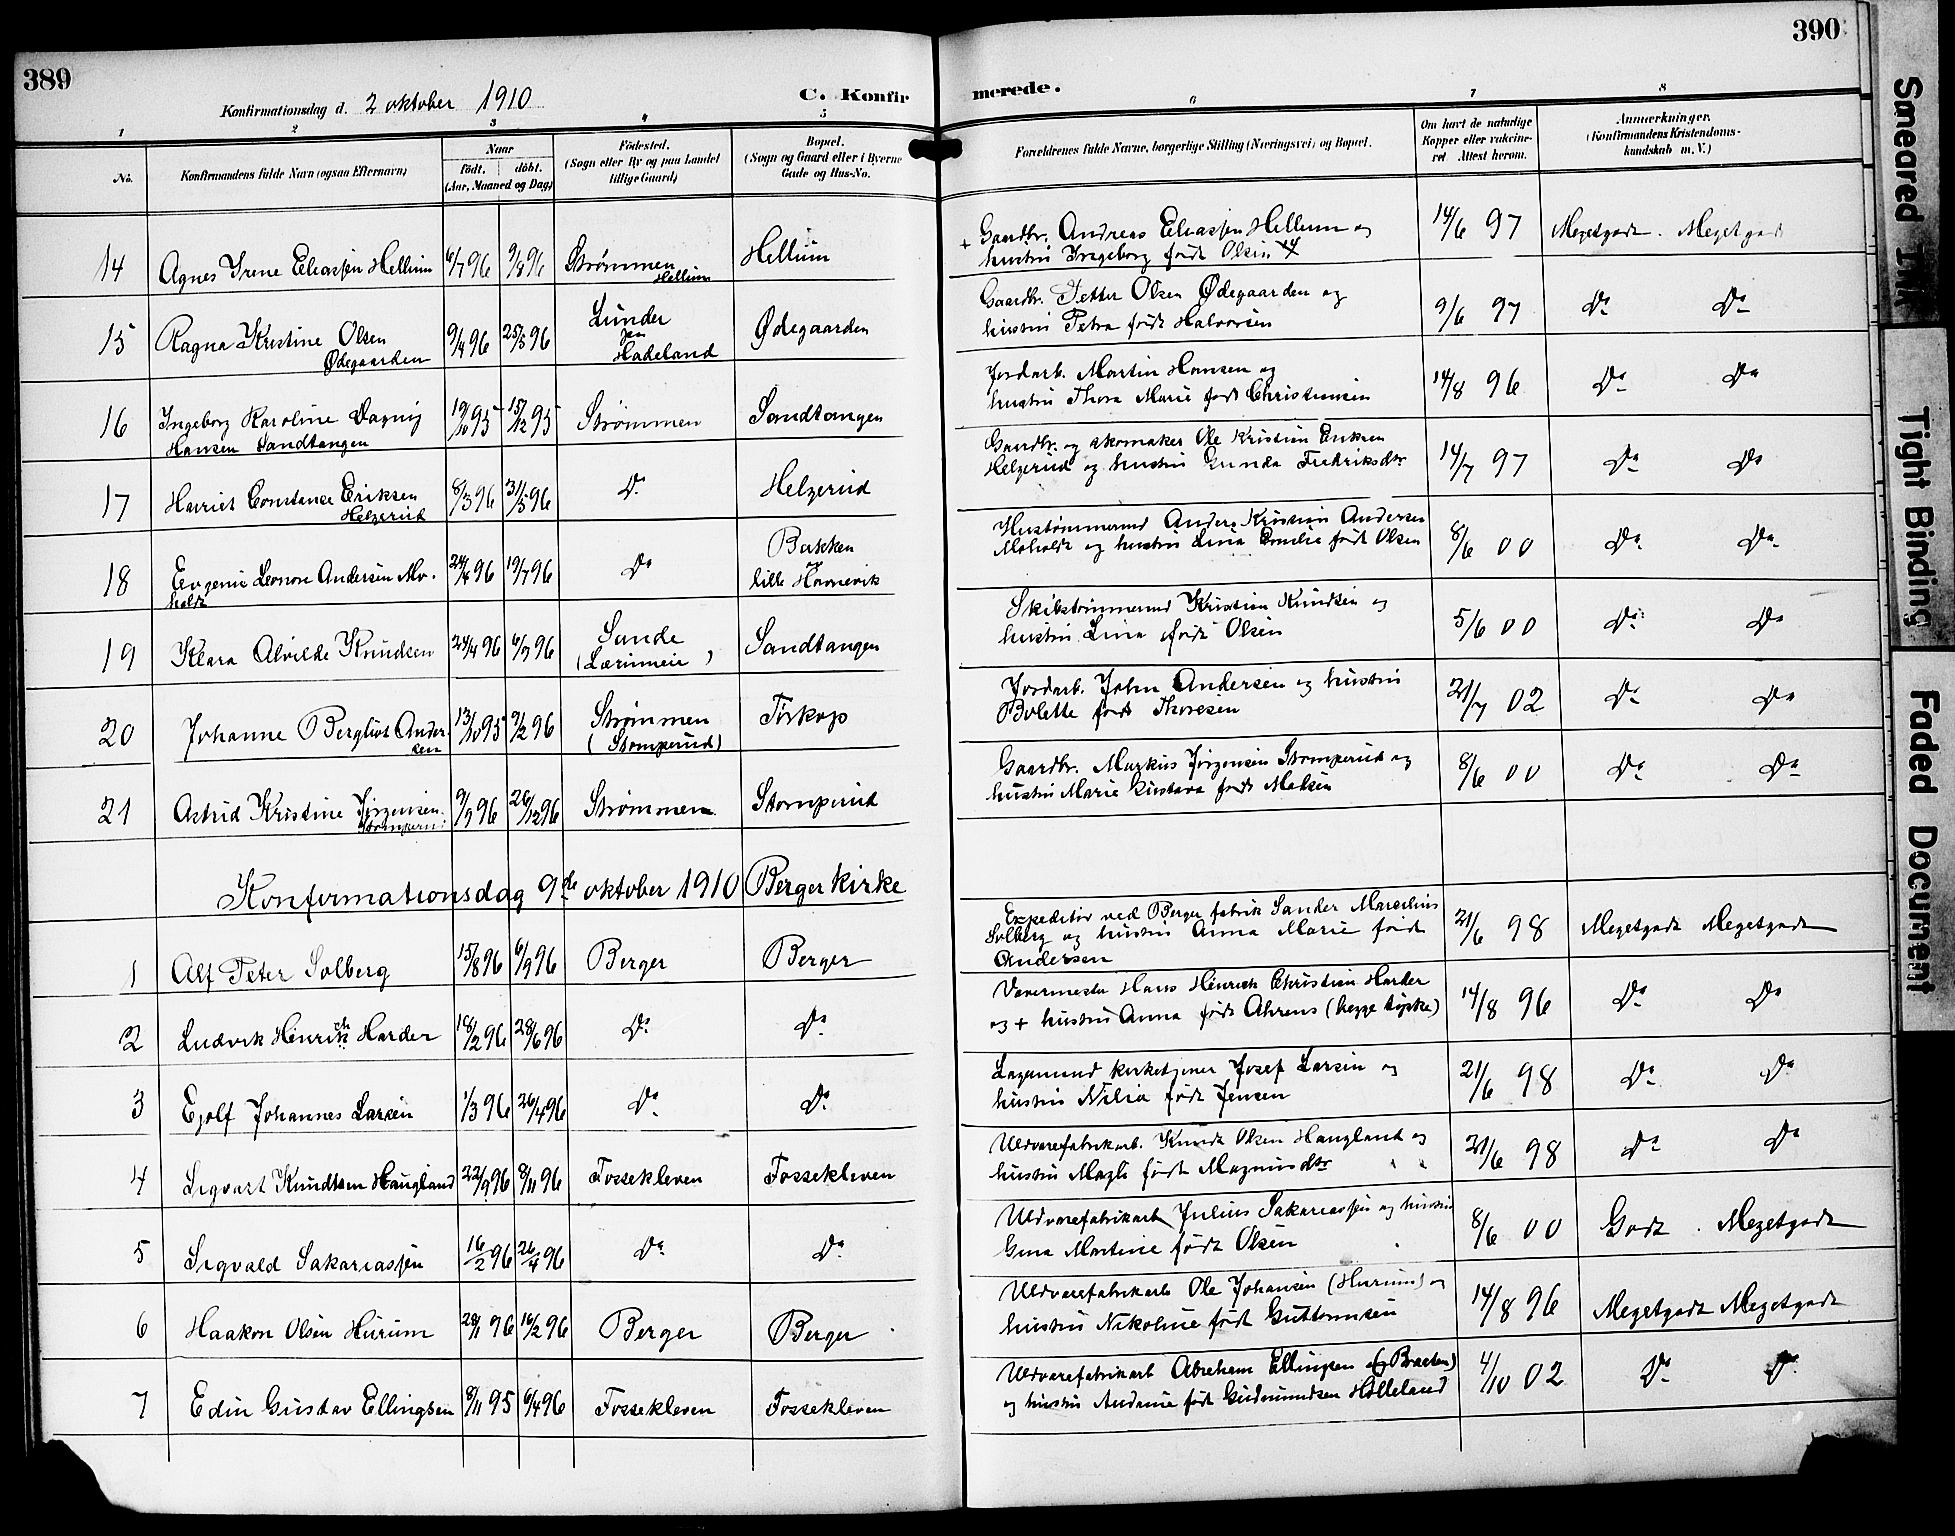 389
390
Konfirmationsdag d. 2 oktober 1910
C. Konfir
merede.
1 2 3 4 5 6 7 8
No.
Konfirmandens fulde Navn (ogsaa Efternavn)
Naar
født, døbt,
(Aar, Maaned og Dag)
Fødested.
(Sogn eller By og paa Landet
tillige Gaard)
Bopæl.
(Sogn og Gaard eller i Byerne
Gade og Hus-No.
Forældrenes fulde Navne, borgerlige Stilling (Næringsvei) og Bopæl.
Om havt de naturlige
Kopper eller vakcine-
ret Attest herom.
Anmærkninger.
(Konfirmandens Kristendoms-
kundskab m. V.)
14 Agnes Irene Eliassen Hellum 6/7 96 9/8 96 Strømmen Hellum
Hellum
+ Gaardbr. Andreas Eliassen Hellum og
hustru Ingeborg født Olsen
14/6 97 Megetgodt. Megetgodt
15 Ragna Kristine Olsen
Ødegaarden
9/4 96 25/5 96 Lunder
paa
Hadeland
Ødegaarden
Gaardbr. Petter Olsen Ødegaarden og
hustru Petra født Halvorsen
9/6 97 Do Do
16 Ingeborg Karoline Dagny
Hansen Sandtangen
19/10 95 15/12 95 Strømmen Sandtangen
Jordarb. Martin Hansen og
hustru Thora Marie født Christensen
14/8 96 Do Do
17 Harriet Constance Eriksen
Helgerud
8/3 96 31/5 96 Do Helgerud
Gaardbr. og skomaker Ole Kristian Eriksen
Helgerud og hustru Gunda Fredriksdtr
14/7 97 Do Do
18 Eugenie Leonora Andersen Mo-
holdt
24/4 96 19/7 96 Do Bakken
lille Havnevik
Hustømmermd Anders Kristian Andersen
Moholdt og hustru Lina Emilie født Olsen
8/6 00 Do Do
19 Klara Alvilde Knudsen 24/4 96 6/9 96 Sande
Sandtangen
Skibstømmermd Kristian Knudsen og
hustru Lina født Olsen
5/6 00 Do Do
20 Johanne Bergliot Ander-
sen
13/10 95 9/2 96 Strømmen
(Stomperud)
Torkop
Jordarb. John Andersen og hustru
Bolette født Thoresen
21/7 02 Do Do
21 Astrid Kristine Jørgensen
9/9 96 26/12 96 Strømmen Stomperud
Gaardbr. Markus Jørgensen Stomperud og
hustru Marie Gustava født
8/6 00 Do Do
Konfirmationsdag 9de oktober 1910 Berger kirke
1 Alf Peter Solberg 15/8 96 6/9 96 Berger Berger
Expeditør ved Berger fabrik Sander Marcelius
Solberg og hustru Anna Marie født
Andersen
21/6 98 Megetgodt Megetgodt
2 Ludvik Henrik Harder 18/2 96 28/6 96 Do Do
Vævermester Hans Heinrich Christian Harder
og + hustru Anna født Ahrens (begge tyske)
14/8 96 Do Do
3 Ejolf Johannes Larsen 1/3 96 26/4 96 Do Do
Lagermand kirketjener Josef Larsen og
hustru Nilia født Jensen
21/6 98 Do Do
4 Sigvart Knudtsen Haugland 22/9 96 8/11 96 Fossekleven Fossekleven
Uldvarefabrikarb. Knudt Olsen Haugland og
hustru Magli født Magnusdtr
21/6 98 Do Do
5 Sigvald Sakariassen 16/2 96 26/4 96 Do Do
Uldvarefabrikarb Julius Sakariassen og hustru
Gina Martine født Olsen
8/6 00 Godt. Megetgodt
6 Haakon Olsen Hurum 28/1 96 16/2 96 Berger Berger
Uldvarefabrikarb Ole Johansen (Hurum) og
hustru Nikoline født Guttormsen
14/8 96 Megetgodt Megetgodt
7 Edin Gustav Ellingsen 8/11 95 6/4 96 Fossekleven Fossekleven
Uldvarefabrikarb Abraham Ellingsen (Braaten)
og hustru Andrine født Gudmundsen Hølleland
4/10 02 Do Do
Smeared Ink
Tight Binding
Faded Document